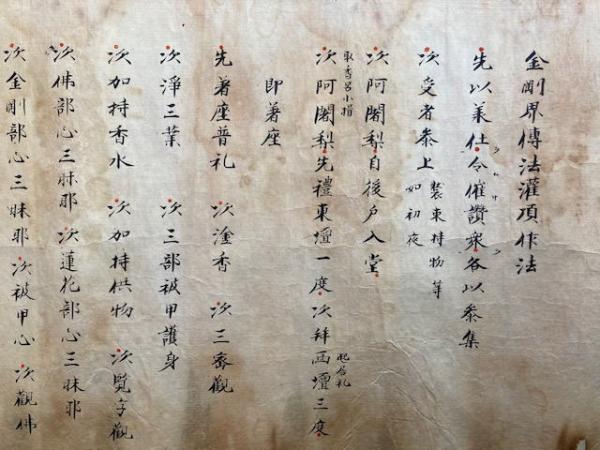 金剛界傳法灌頂作法
先以義仕令催讃衆各以參集
次受者參上 裝束持物等
如初夜
次阿闍梨自後戶入堂
取香呂小揖
次阿闍梨先禮東壇一度次拜西壇三度
起居礼
即著座
先著座普礼 次塗香 次三密觀
次淨三業 次三部被甲護身
次加持香水 次加持供物 次覽字觀
次佛部心三昧耶 次蓮花部心三昧耶
次金剛部心三昧耶 次被甲心 次觀佛